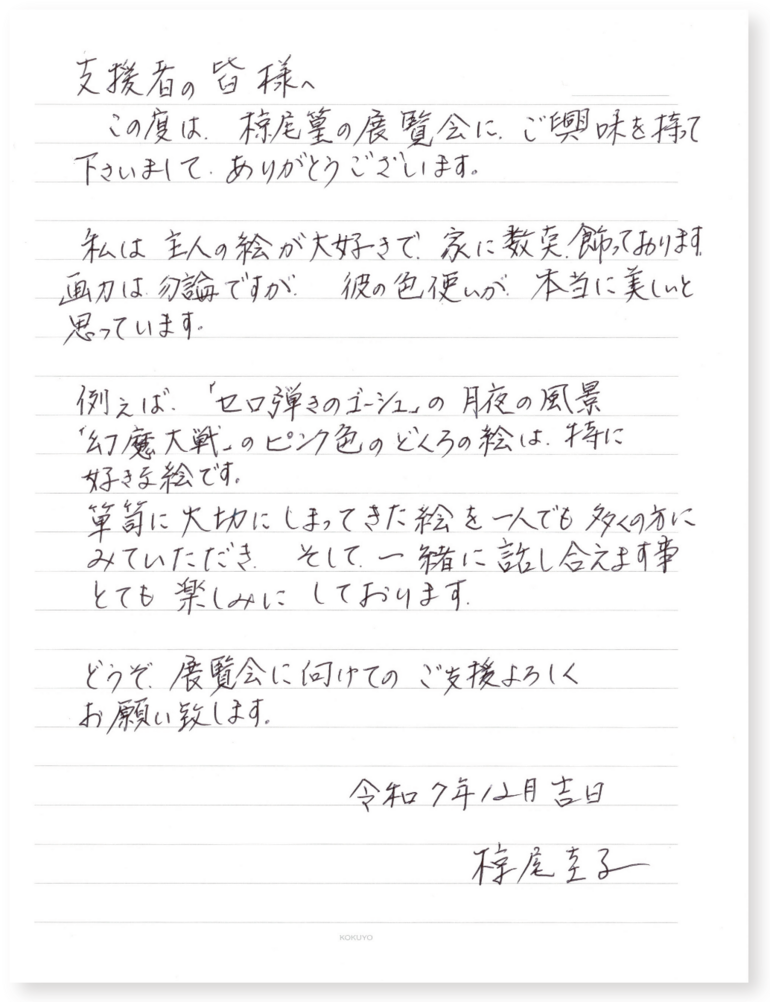 支援者の皆様へ
この度は、椋尾篁の展覧会に、ご興味を持って
下さいまして、ありがとうございます。
私は主人の絵が大好きで、家に数点、飾っております
画力は勿論ですが、彼の色使いが、本当に美しいと
思っています。
例えば、「セロ弾きのゴーシュ」の月夜の風景
「幻魔大戦」のピンク色のどくろの絵は、特に
好きな絵です。
箪笥に大切にしまってきた絵を一人でも多くの方に
みていただき、そして、一緒に話し合えます事
とても楽しみにしております。
どうぞ、展覧会に向けてのご支援よろしく
お願い致します。
令和7年12月吉日
椋尾圭子
KOKUYO